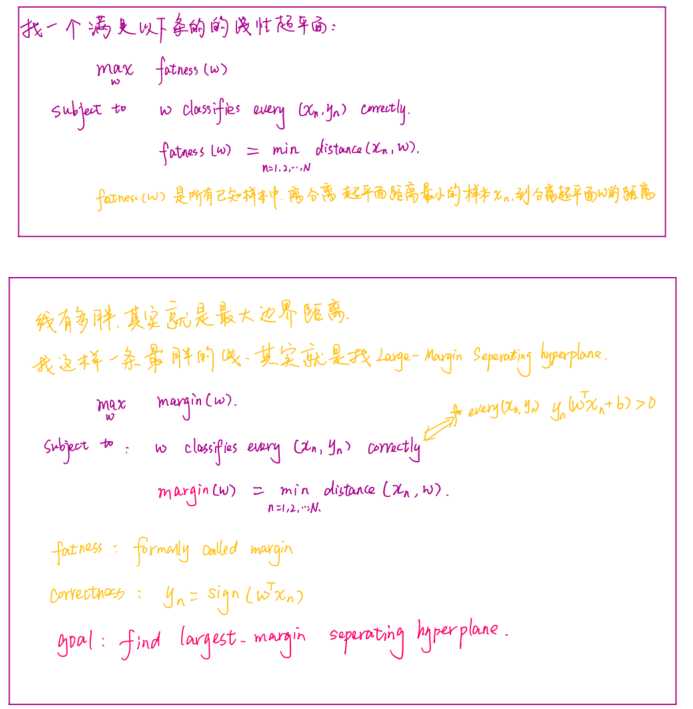 找一个满足以下条的的线性超平面：
max fatness(w)
w
subject to w classifies every (xn, yn) correctly.
fatness(w) = min distance(xn, w).
n=1,2,...,N
fatness(w) 是所有已知样本中, 离分离超平面距离最小的样本xn, 到分离超平面w的距离
线有多胖, 其实就是最大边界距离.
找这样一条最胖的线, 其实就是找 Large-Margin Seperating hyperplane.
max margin(w).
w
for every(xn, yn) yn(wᵀxn+b)>0
subject to: w classifies every (xn, yn) correctly
margin(w) = min distance(xn, w).
n=1,2,...,N.
fatness: formally called margin
correctness: yn = sign(wᵀxn)
goal: find largest-margin seperating hyperplane.